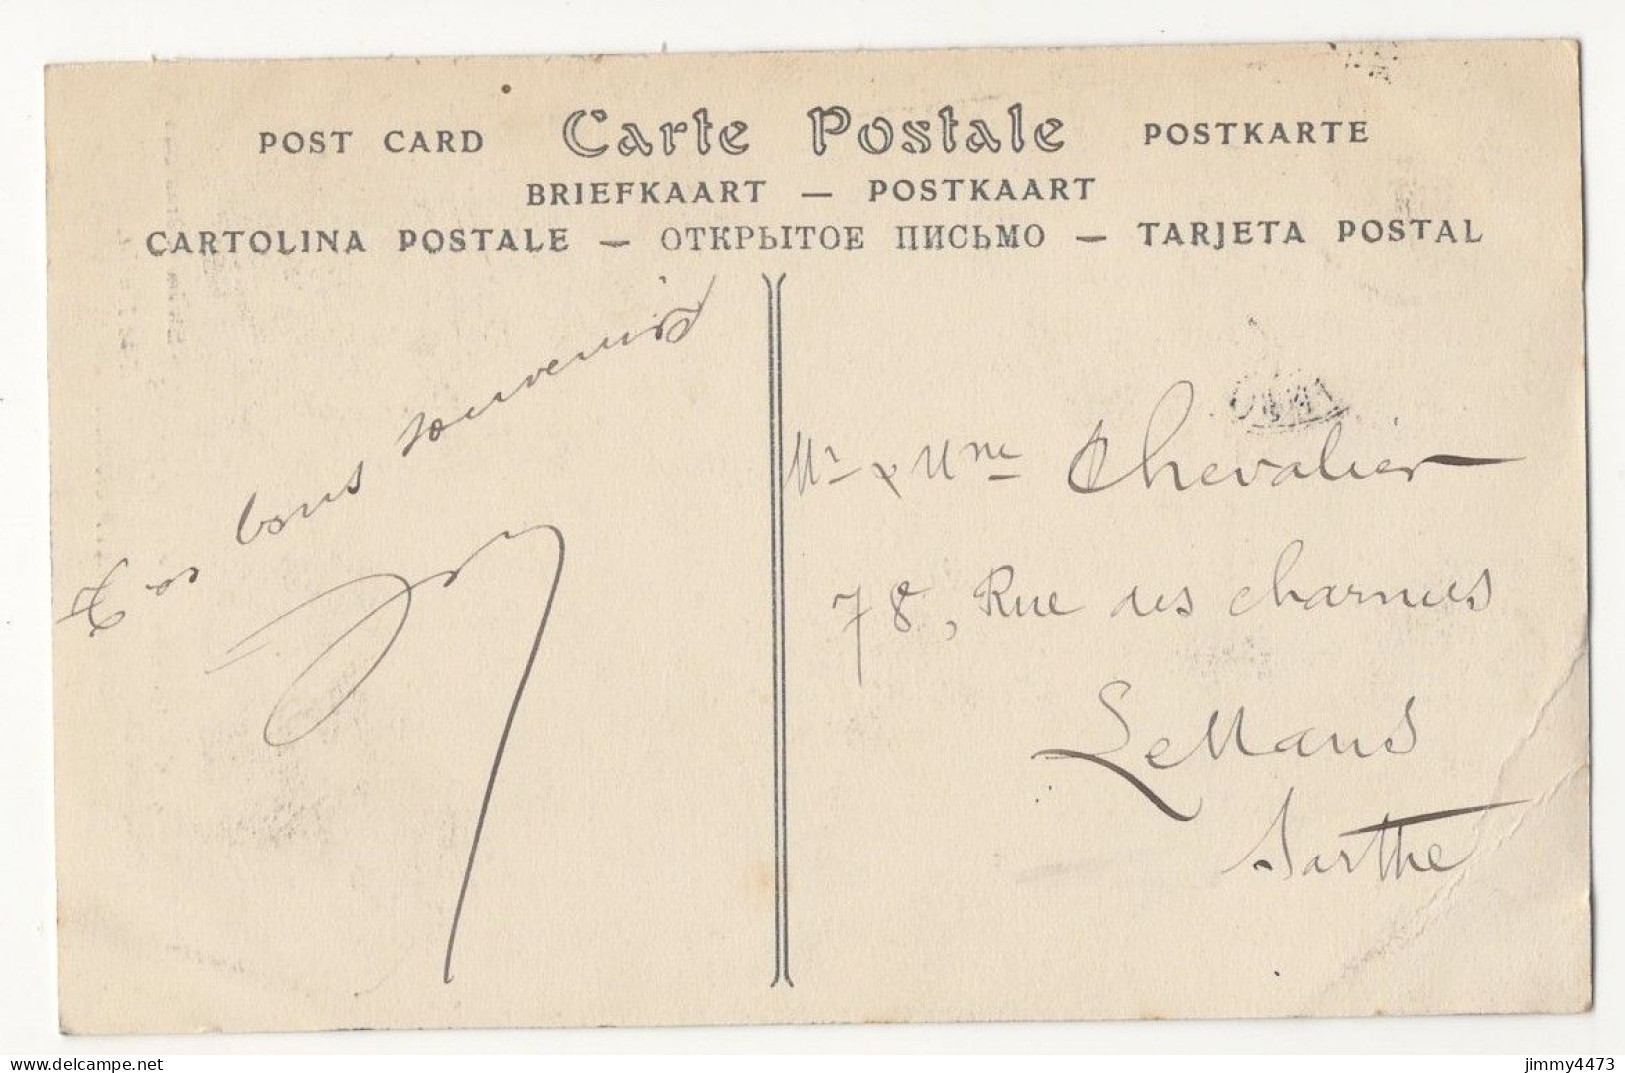 POST CARD Carte Postale POSTKARTE
BRIEFKAART — POSTKAART
CARTOLINA POSTALE — ОТКРЫТОЕ ПИСЬМО — TARJETA POSTAL
bons souvenirs
Mr & Mme Chevalier
78, Rue des Charnies
Le Mans
Sarthe
jimmy4473